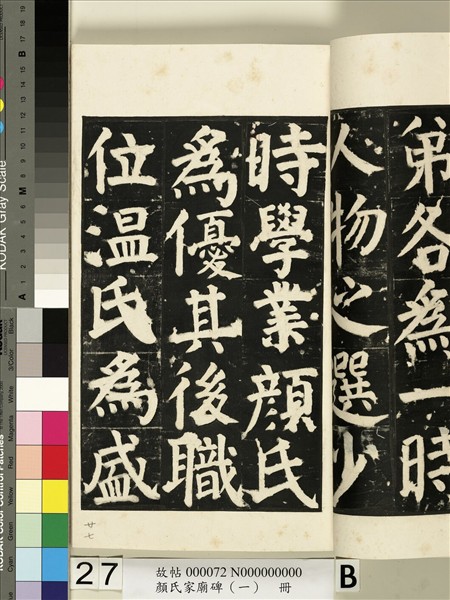 弟各為一時
人物之選少
時學業顏氏
為優其後職
位溫氏為盛
廿七
27
故帖 000072 N000000000
顏氏家廟碑（一） 冊
B
KODAK Gray Scale
A 1 2 3 4 5 6 M 8 9 10 11 12 13 14 15 B 17 18 19
KODAK Color Control Patches
Blue Cyan Green Yellow Red Magenta White 3/Color Black